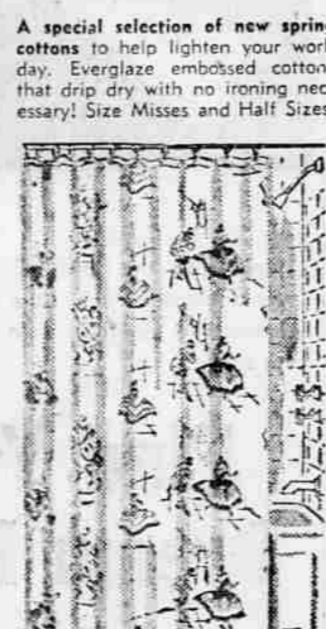 A special selection of new spring
cottons to help lighten your work
day. Everglaze embossed cotton
that drip dry with no ironing nec
essary! Size Misses and Half Sizes